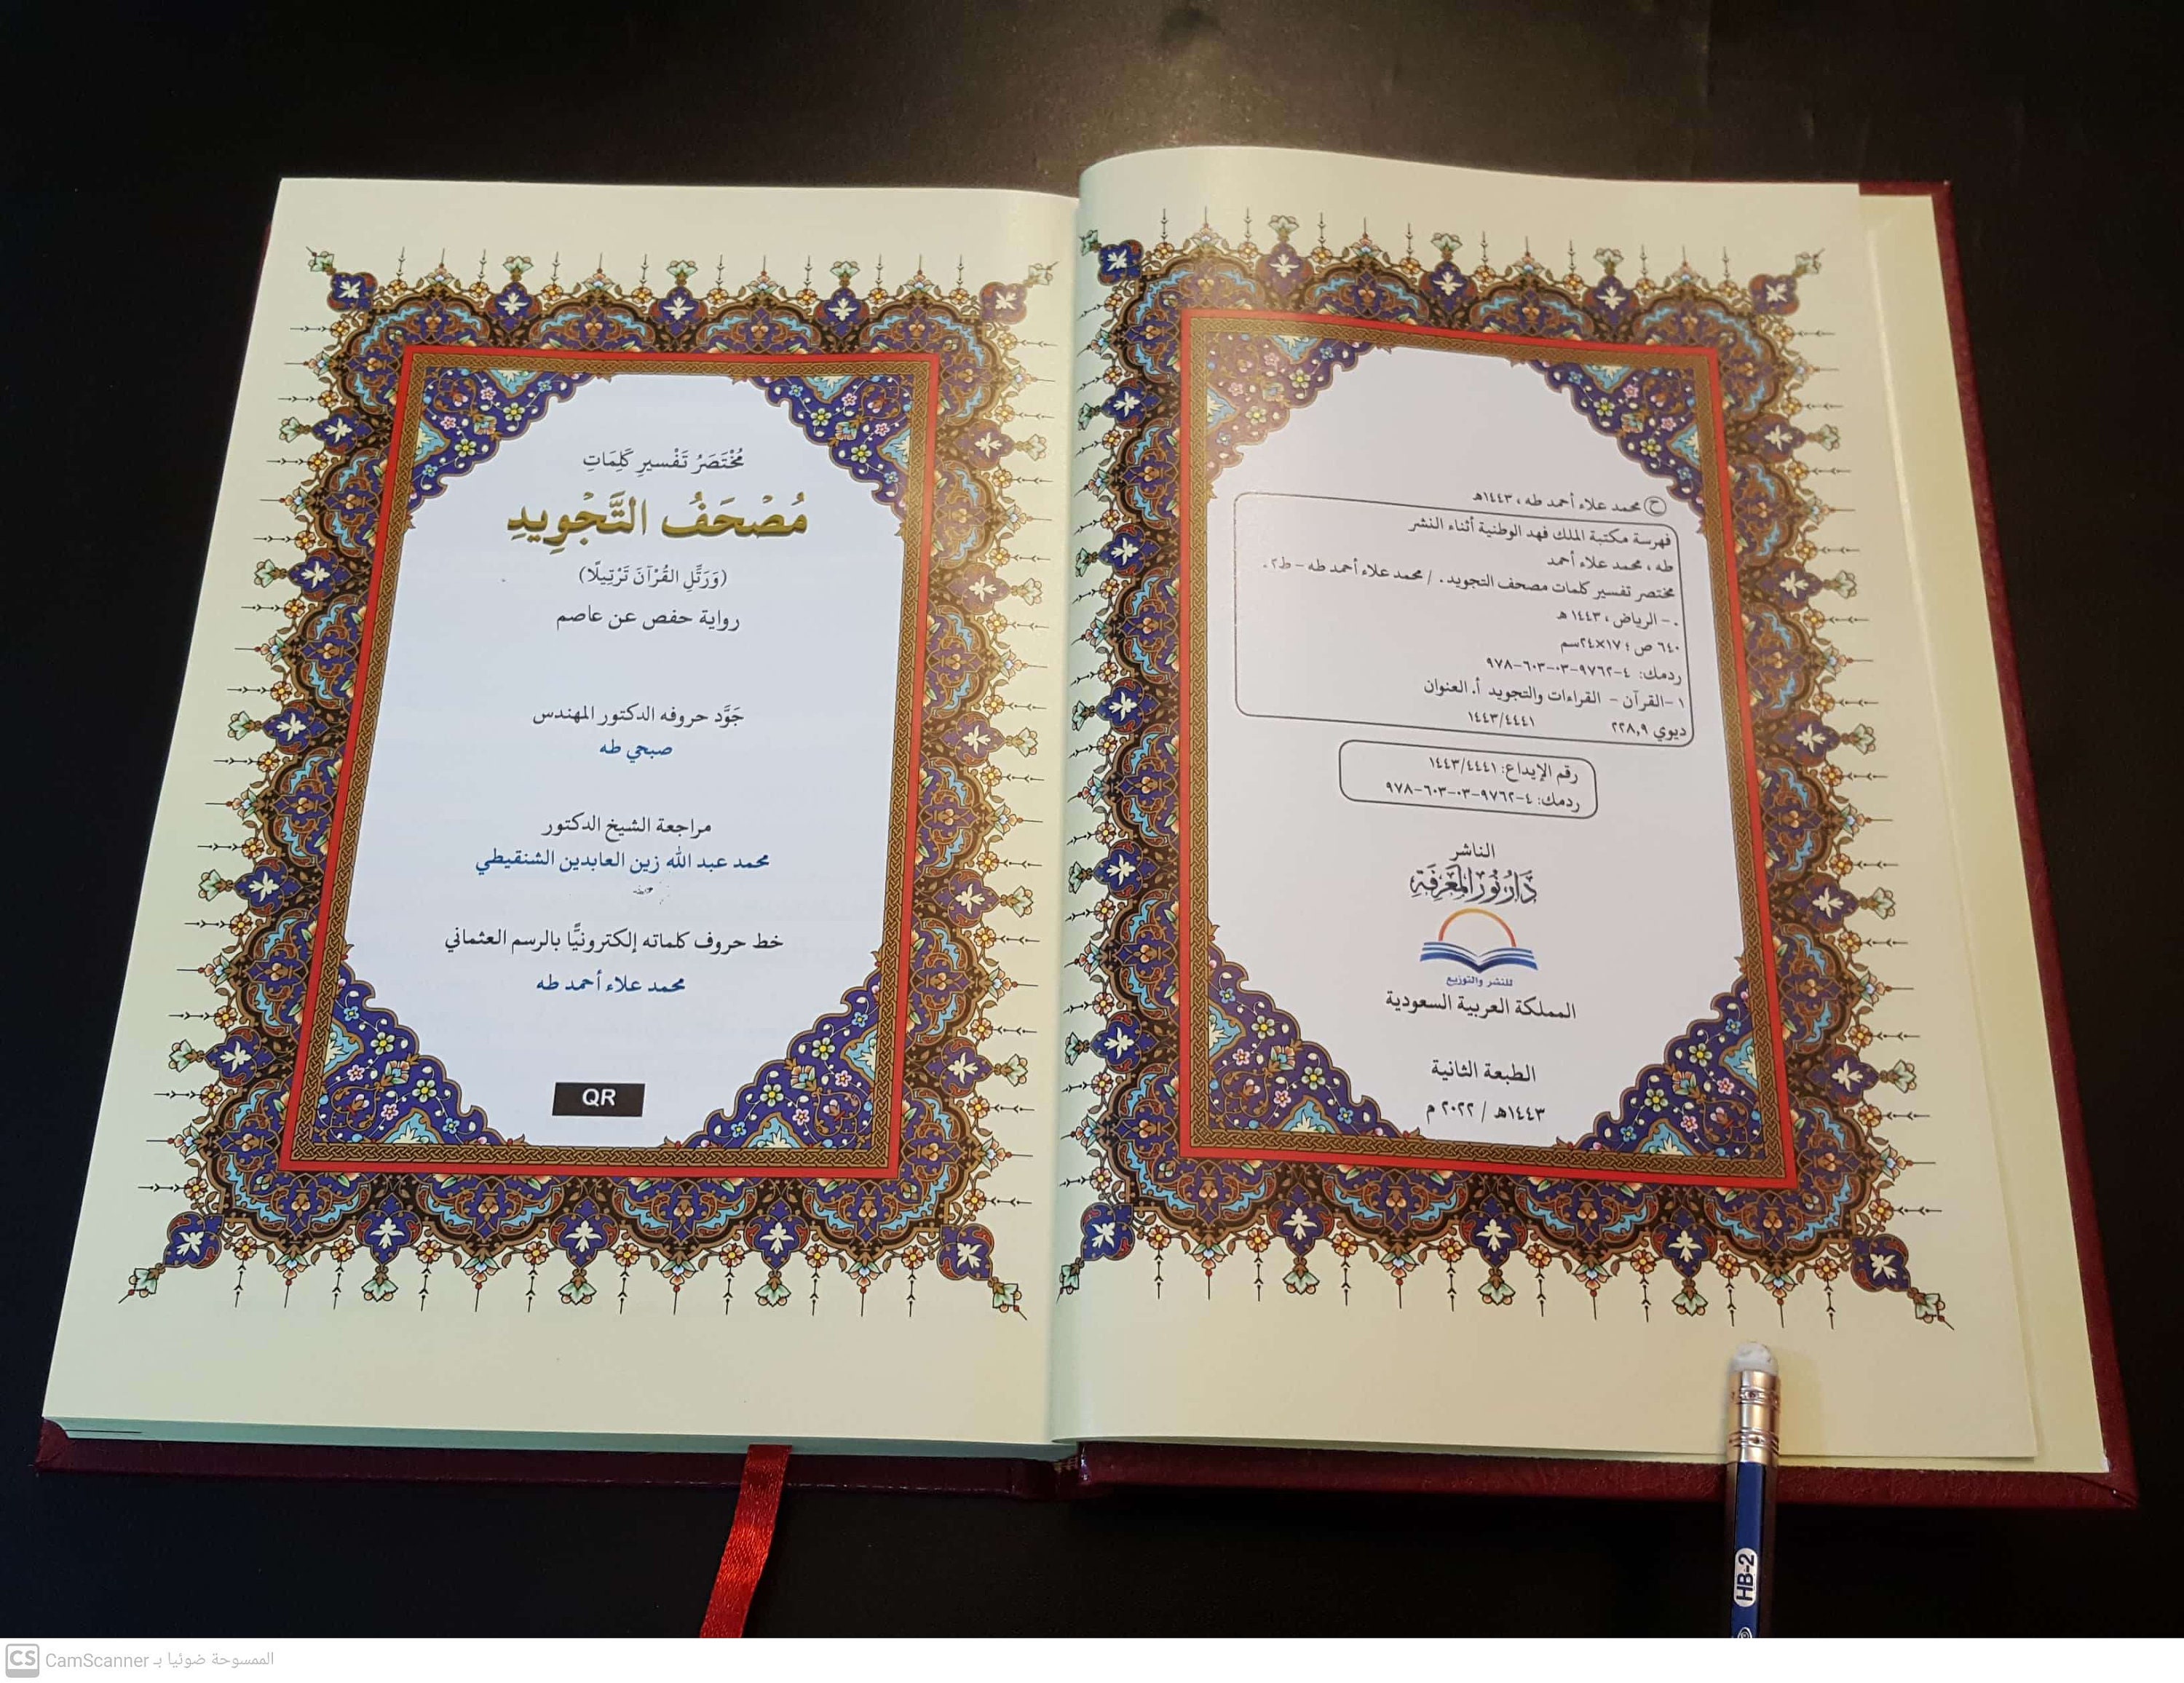 ح محمد علاء أحمد طه ، ١٤٤٣هـ
فهرسة مكتبة الملك فهد الوطنية أثناء النشر
طه ، محمد علاء أحمد
مختصر تفسير كلمات مصحف التجويد . / محمد علاء أحمد طه - ط٢ .
. - الرياض ، ١٤٤٣ هـ
٦٤٠ ص ؛ ١٧×٢٤سم
ردمك: ٤-٩٧٦٢-٠٣-٦٠٣-٩٧٨
١-القرآن - القراءات والتجويد أ. العنوان
ديوي ٢٢٨,٩ ١٤٤٣/٤٤٤١
رقم الإيداع: ١٤٤٣/٤٤٤١
ردمك: ٤-٩٧٦٢-٠٣-٦٠٣-٩٧٨
الناشر
دَارُ نُورِ المَعْرِفَةِ
للنشر والتوزيع
المملكة العربية السعودية
الطبعة الثانية
١٤٤٣هـ / ٢٠٢٢ م
مُخْتَصَرُ تَفْسِيرِ كَلِمَاتِ
مُصْحَفُ التَّجْوِيدِ
(وَرَتِّلِ القُرْآنَ تَرْتِيلًا)
رواية حفص عن عاصم
جَوَّد حروفه الدكتور المهندس
صبحي طه
مراجعة الشيخ الدكتور
محمد عبد الله زين العابدين الشنقيطي
خط حروف كلماته إلكترونيًّا بالرسم العثماني
محمد علاء أحمد طه
QR
HB-2
CS CamScanner الممسوحة ضوئيا بـ